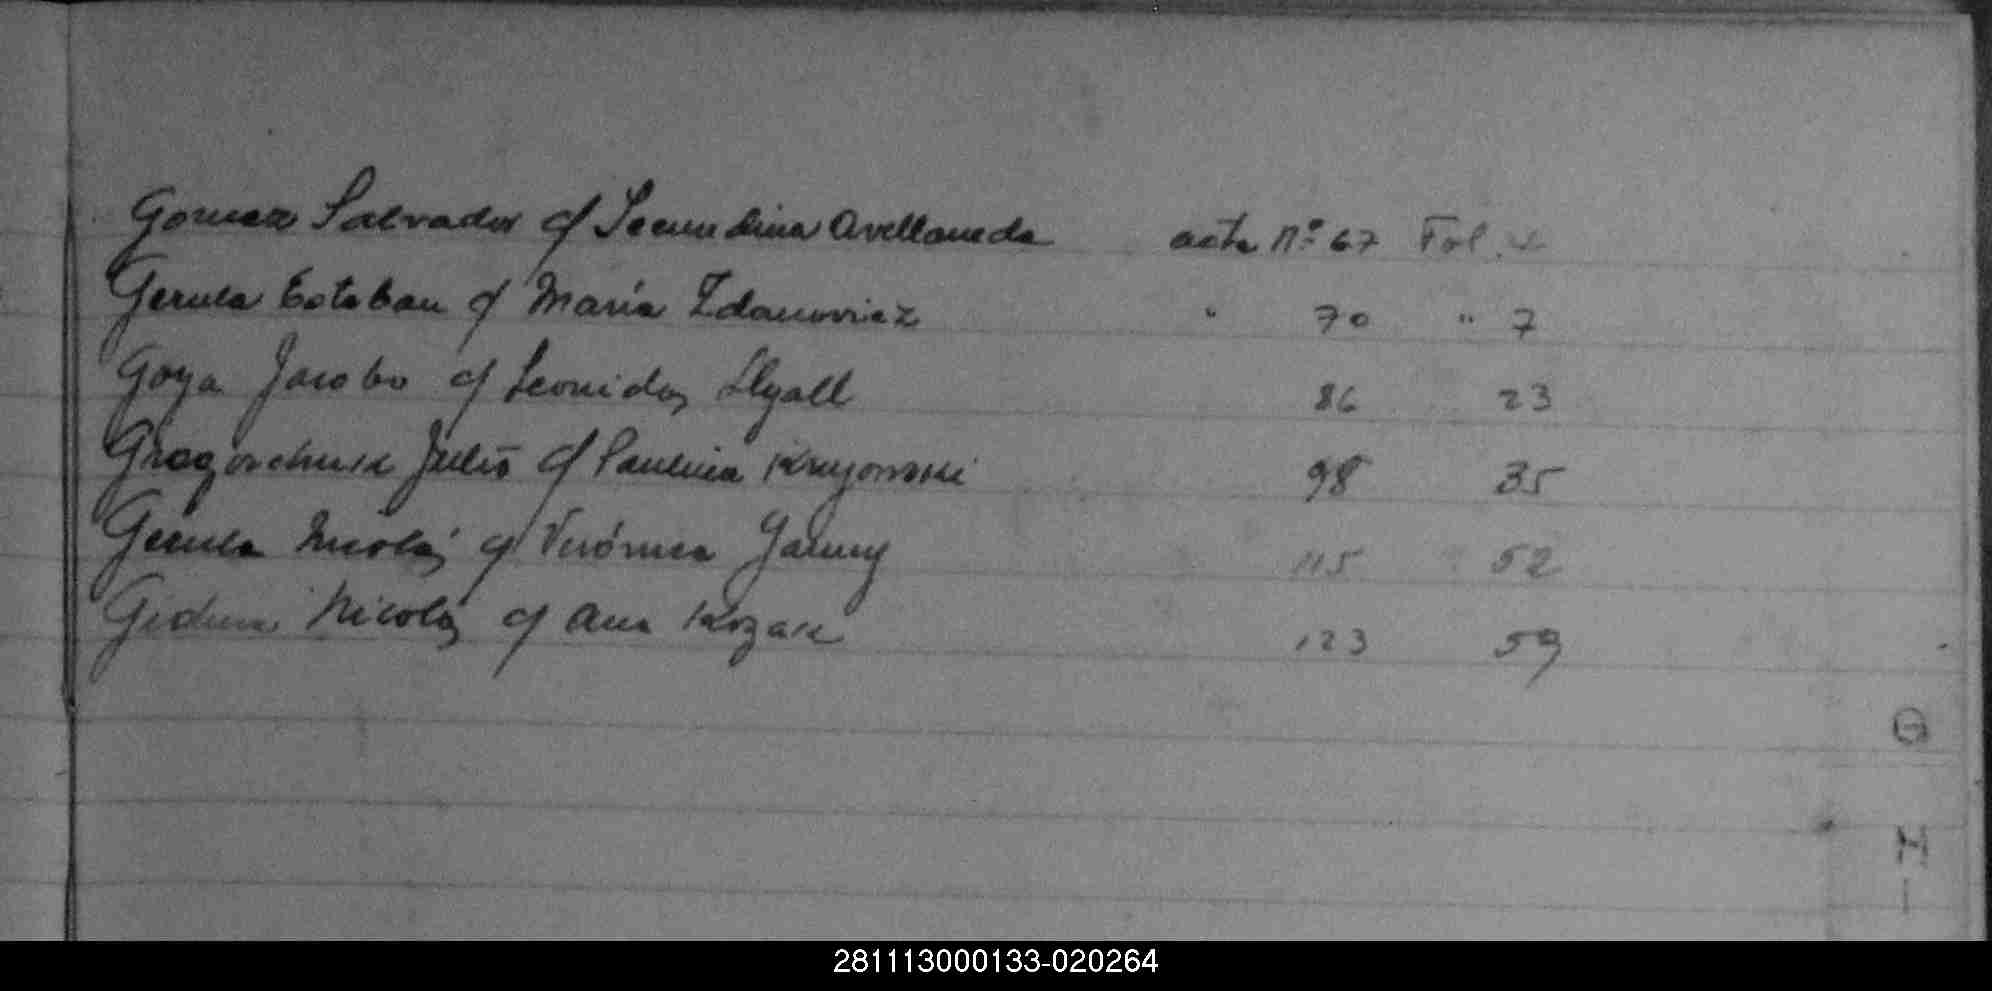 Gomez Salvador c/ Secundina Avellaneda acta Nº 67 Fol. 4
Gerula Esteban c/ María Zdanoviez " 70 " 7
Goya Jacobo c/ Leonidas Llyall 86 23
Gregorchuk Julio c/ Paulina 98 35
Gerula Nicolás c/ Verónica 115 " 52
Nicolás c/ Ana Kozak 123 59
G
H
I
281113000133-020264